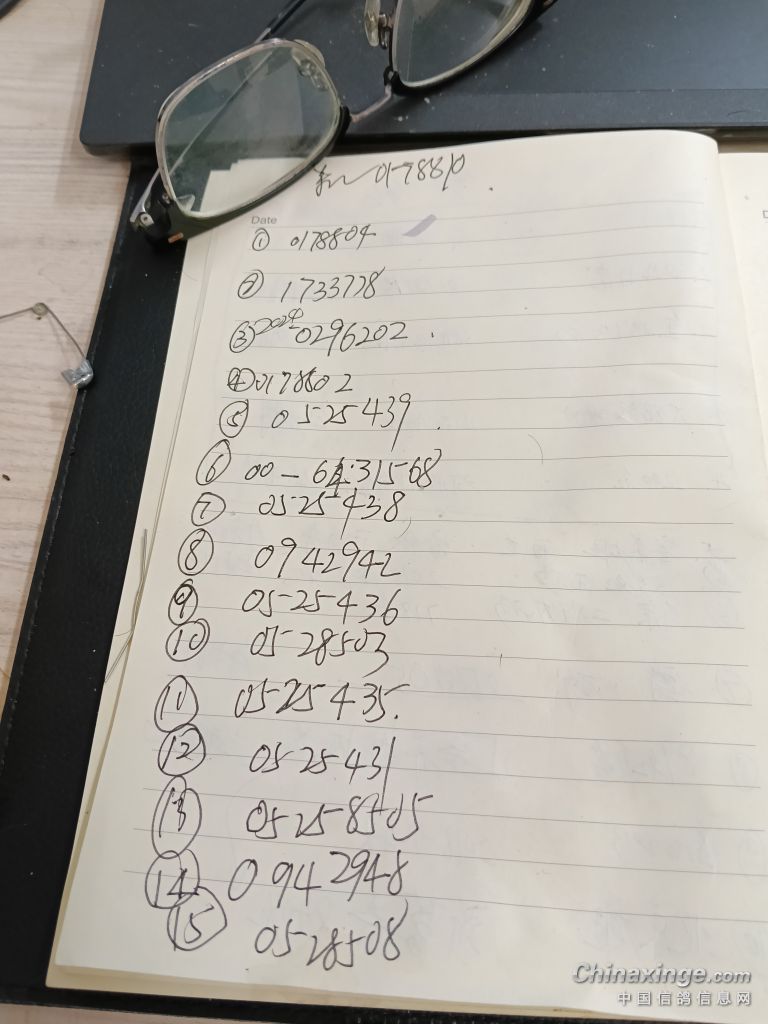 0178810
Date
① 0178804
② 1733778
③ 2024-0296202
④ 0178802
⑤ 0525439
⑥ 00-6431568
⑦ 0525438
⑧ 0942942
⑨ 0525436
⑩ 0528503
⑪ 0525435.
⑫ 0525431
⑬ 05258505
⑭ 0942948
⑮ 0528508
Chinaxinge.com
中国信鸽信息网